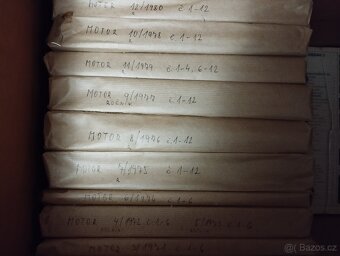 MOTOR 12/1980 č. 1-12
MOTOR 10/1978 č. 1-12
MOTOR 11/1979 č. 1-4, 6-12
MOTOR 9/1977 č. 1-12
ROČNÍK
MOTOR 8/1976 č. 1-12
MOTOR 7/1975 č. 1-12
MOTOR 6/1974 č. 1-6
MOTOR 4/1972 č. 1-6 5/1973 č. 1-6
MOTOR 3/1971 č. 1-6
© Bazos.cz